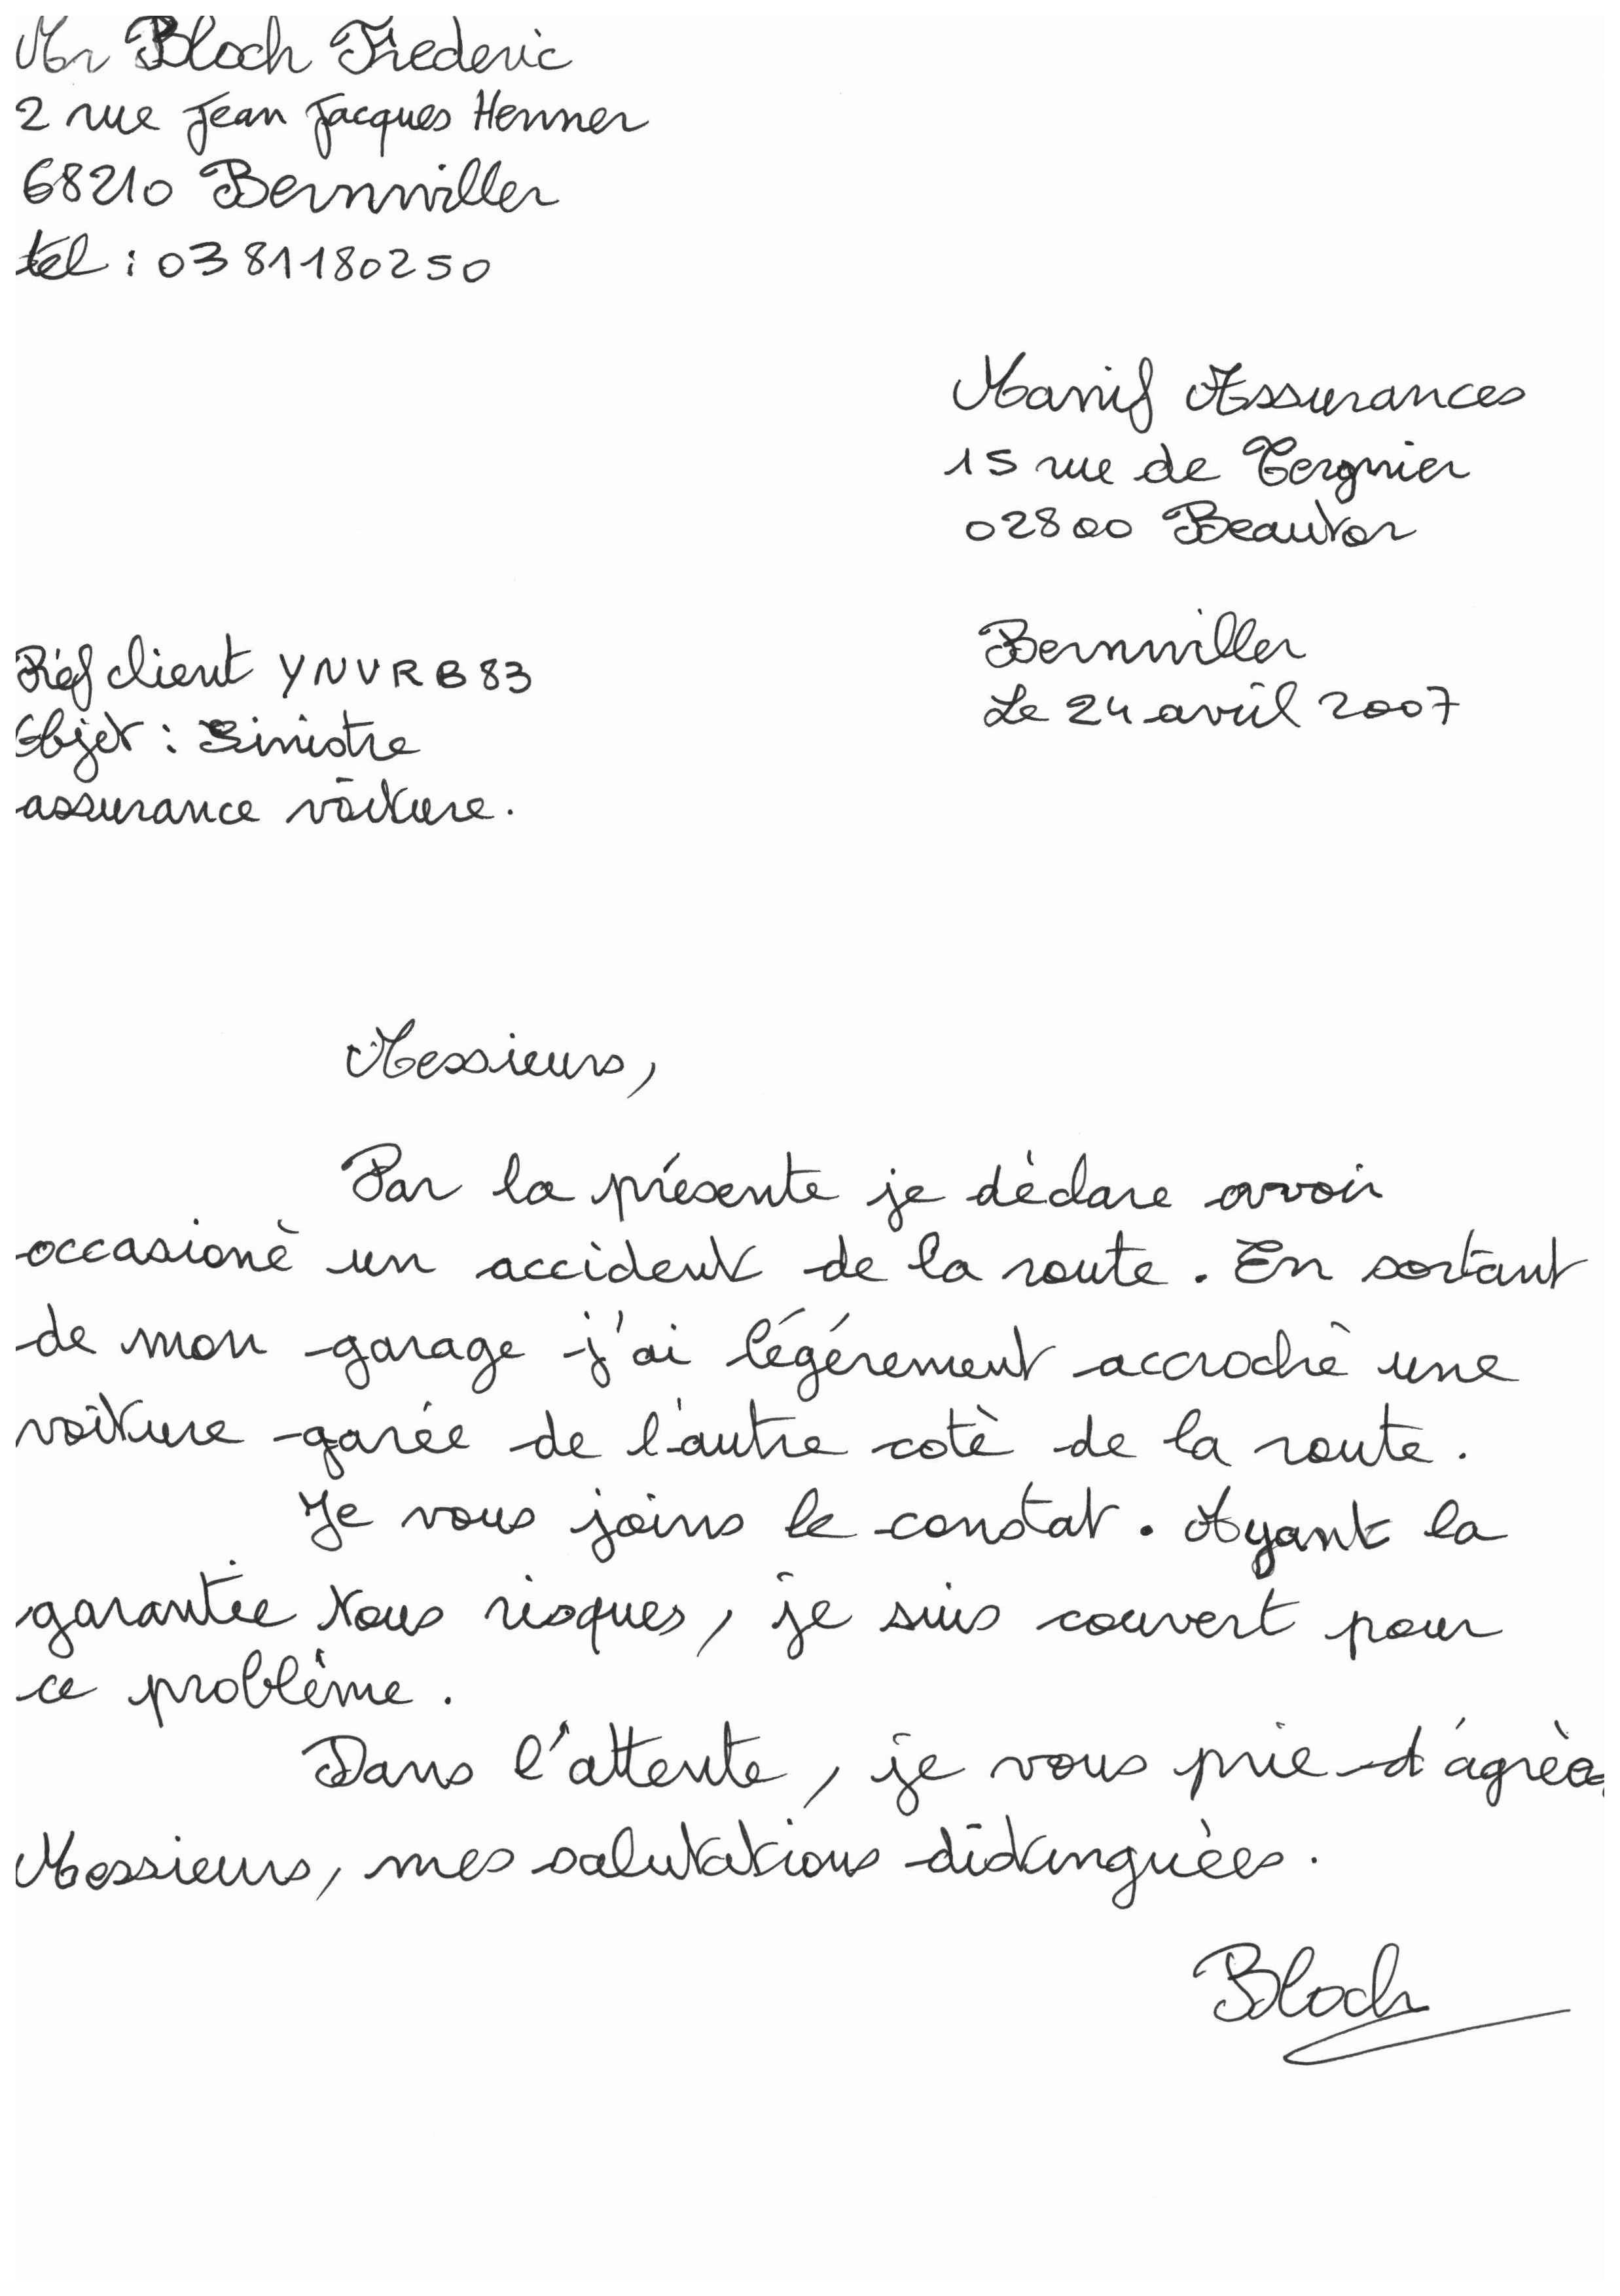 Mr Bloch Frederic
2 rue Jean Jacques Henner
68210 Bernwiller
tel : 03 81180250
Manif Assurances
15 rue de Tergnier
02800 Beautor
Bernwiller
Le 24 avril 2007
Réf client YNVRB83
Objet : Sinistre
assurance voiture.
Messieurs,
Par la présente je déclare avoir
occasioné un accident de la route. En sortant
de mon garage j'ai légérement accroché une
voiture garée de l'autre coté de la route.
Je vous joins le constat. Ayant la
garantie tous risques, je suis couvert pour
ce problème.
Dans l'attente, je vous prie d'agréer
Messieurs, mes salutations distinguées.
Bloch